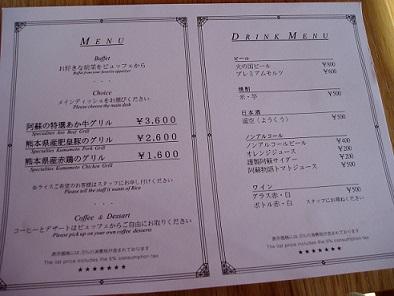 MENU
Buffet
お好きな前菜をビュッフェから
Buffet from your favorite appetizer
Choice
メインディッシュをお選びください
Please choose the main dish
阿蘇の特選あか牛グリル ¥3,600
Specialties Aso Beef Grill
熊本県産肥皇豚のグリル ¥2,600
Specialties Kumamoto Pork Grill
熊本県産赤鶏のグリル ¥1,600
Specialties Kumamoto Chicken Grill
※ライスご希望のお客様はスタッフにお申し付けください
Please tell the staff if wants of Rice
Coffee & Dessart
コーヒーとデザートはビュッフェからご自由にお取りください
Please pick up on your own coffee desserts
表示価格には、5%の消費税が含まれております
The list price includes the 5% consumption tax
★★★★★★★
DRINK MENU
ビール
火の国ビール ¥800
プレミアムモルツ ¥600
焼酎
米・芋 ¥500
日本酒
蓮空(ようくう) ¥500
ノンアルコール
ノンアルコールビール ¥400
オレンジジュース ¥200
謹製阿蘇サイダー ¥200
阿蘇物語トマトジュース ¥500
ワイン
グラス赤・白 ¥500
ボトル赤・白 スタッフにお尋ねください
表示価格には、5%の消費税が含まれております
The list price includes the 5% consumption tax
★★★★★★★